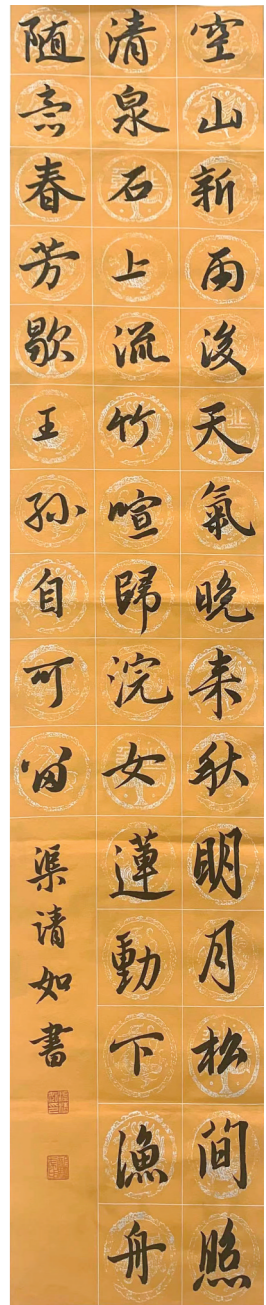 空山新雨後天氣晚来秋明月松间照
清泉石上流竹喧歸浣女蓮動下漁舟
随意春芳歇王孙自可留
渠请如書